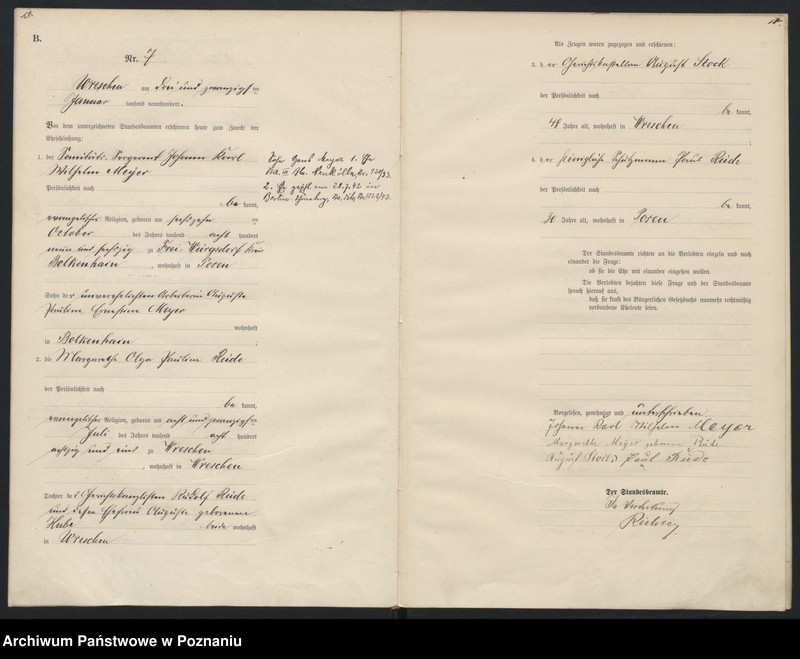 B.
Nr. 7
Wreschen am drei und zwanzigsten
Januar tausend neunhundert.
Vor dem unterzeichneten Standesbeamten erschienen heute zum Zwecke der
Eheschließung:
1. der Sanitäts-Sergeant Johann Karl
Wilhelm Meyer
Persönlichkeit nach
be kannt,
evangelischer Religion, geboren am sechszehn ten
October des Jahres tausend acht hundert
neun und sechszig zu
Bolkenhain, wohnhaft in Posen
Sohn der unverehelichten Arbeiterin Auguste
Pauline Ernestine Meyer
wohnhaft
in Bolkenhain
2. die Margarethe Olga Pauline
der Persönlichkeit nach
be kannt,
evangelischer Religion, geboren am acht und zwanzigsten
Juli des Jahres tausend acht hundert
achtzig und eins zu Wreschen
, wohnhaft in Wreschen
Tochter des Gerichtskanzlisten Rudolf
und dessen Ehefrau Auguste geborenen
beide wohnhaft
in Wreschen
Als Zeugen waren zugezogen und erschienen:
3. der August Stock
der Persönlichkeit nach
be kannt,
48 Jahre alt, wohnhaft in Wreschen
4. der königliche Schutzmann Paul
der Persönlichkeit nach
be kannt,
30 Jahre alt, wohnhaft in Posen
Der Standesbeamte richtete an die Verlobten einzeln und nach
einander die Frage:
ob sie die Ehe mit einander eingehen wollen.
Die Verlobten bejahten diese Frage und der Standesbeamte
sprach hierauf aus,
daß sie kraft des Bürgerlichen Gesetzbuchs nunmehr rechtmäßig
verbundene Eheleute seien.
Vorgelesen, genehmigt und unterschrieben
Johann Karl Wilhelm Meyer
Margarethe Meyer geborene
August Stock Paul
Der Standesbeamte.
In Vertretung
Richter
Archiwum Państwowe w Poznaniu